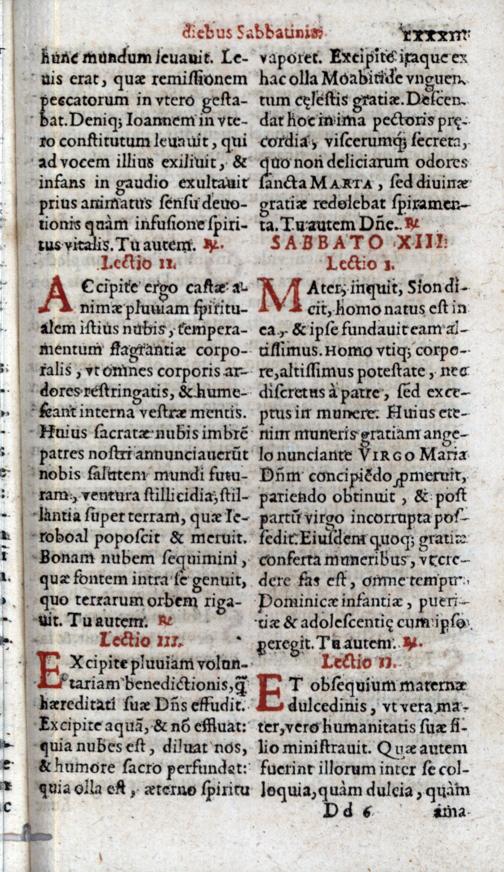 diebus Sabbatinis. lxxxiii.
hunc mundum leuauit. Le-
uis erat, quæ remissionem
peccatorum in vtero gesta-
bat. Deniq; Ioannem in vte-
ro constitutum leuauit, qui
ad vocem illius exiliuit, &
infans in gaudio exultauit
prius animatus sensu deuo-
tionis quàm infusione spiri-
tus vitalis. Tu autem. ℟.
Lectio II.
ACcipite ergo castæ a-
nimæ pluuiam spiritu-
alem istius nubis, tempera-
mentum flagrantiæ corpo-
ralis, vt omnes corporis ar-
dores restringatis, & hume-
scant interna vestræ mentis.
Huius sacratæ nubis imbrē
patres nostri annunciauerūt
nobis salutem mundi futu-
ram, ventura stillicidia, stil-
lantia super terram, quæ Ie-
roboal poposcit & meruit.
Bonam nubem sequimini,
quæ fontem intra se genuit,
quo terrarum orbem riga-
uit. Tu autem. ℟.
Lectio III.
EXcipite pluuiam volun-
tariam benedictionis, q̄
hæreditati suæ Dñs effudit.
Excipite aquā, & nō effluat:
quia nubes est, diluat nos,
& humore sacro perfundat:
quia olla est, æterno spiritu
vaporet. Excipite itaque ex
hac olla Moabitide vnguen-
tum cęlestis gratiæ. Descen-
dat hoc in ima pectoris pręcordia, viscerumq; secreta,
quo non deliciarum odores
sancta MARTA, sed diuinæ
gratiæ redolebat spiramen-
ta. Tu autem Dñe. ℟
SABBATO XIII.
Lectio I.
MAter, inquit, Sion di-
cit, homo natus est in
ea, & ipse fundauit eam al-
tissimus. Homo vtiq; corpo-
re, altissimus potestate, nec
discretus à patre, sed exce-
ptus in munere. Huius ete-
nim muneris gratiam ange-
lo nunciante VIRGO Maria
Dñm concipiēdo ꝓmeruit,
pariendo obtinuit, & post
partū virgo incorrupta pos-
sedit. Eiusdem quoq; gratiæ
conferta muneribus, vt cre-
dere fas est, omne tempus
Dominicæ infantiæ, pueri-
tiæ & adolescentię cum ipso
peregit. Tu autem. ℟.
Lectio II.
ET obsequium maternæ
dulcedinis, vt vera ma-
ter, vero humanitatis suæ fi-
lio ministrauit. Quæ autem
fuerint illorum inter se col-
loquia, quàm dulcia, quàm
Dd 6 ama-